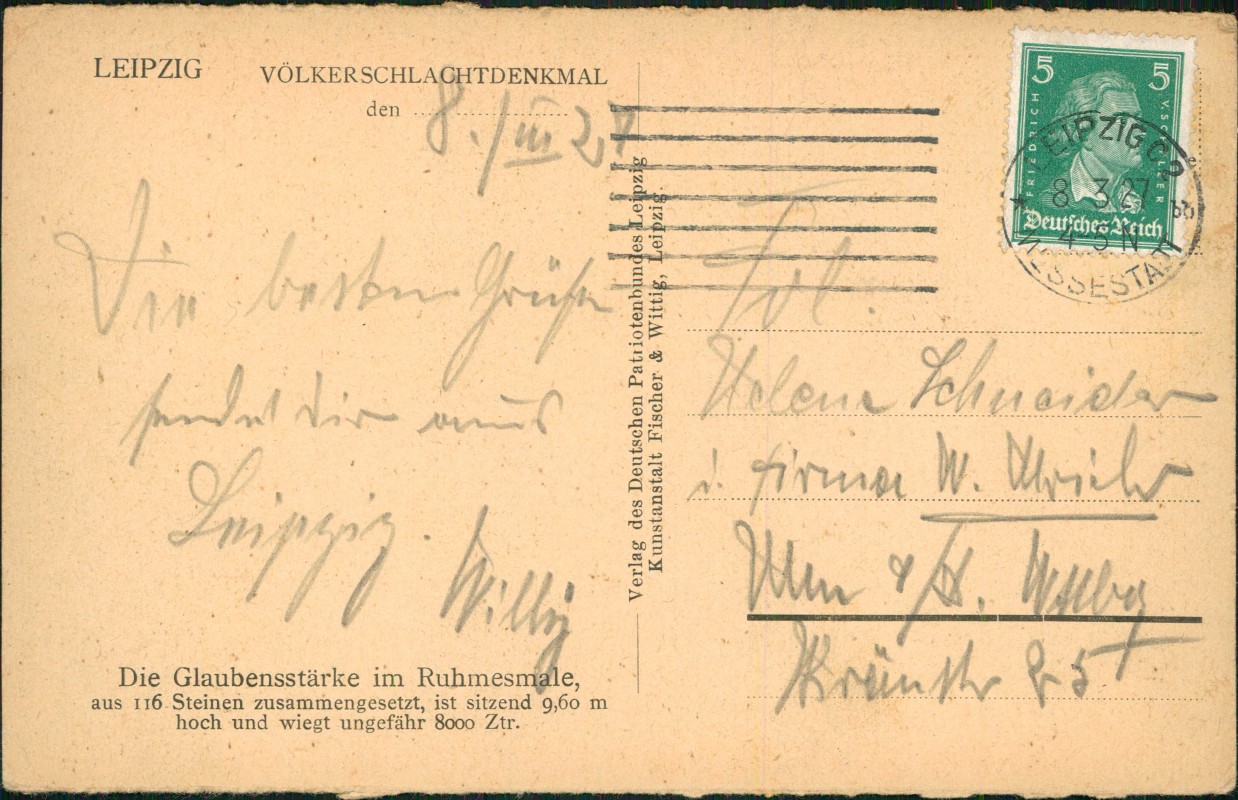 LEIPZIG VÖLKERSCHLACHTDENKMAL
den 8./III 27
Die besten Grüße
sendet dir aus
Leipzig.
Willy
Die Glaubensstärke im Ruhmesmale,
aus 116 Steinen zusammengesetzt, ist sitzend 9,60 m
hoch und wiegt ungefähr 8000 Ztr.
Verlag des Deutschen Patriotenbundes Leipzig
Kunstanstalt Fischer & Wittig, Leipzig.
5 5
FRIEDRICH V. SCHILLER
Deutsches Reich
LEIPZIG C2
8 3 27
4-5 N
MESSESTADT
Frl.
Helene Schneider
i. Firma W.
Ulm a/D. Wttbg
25